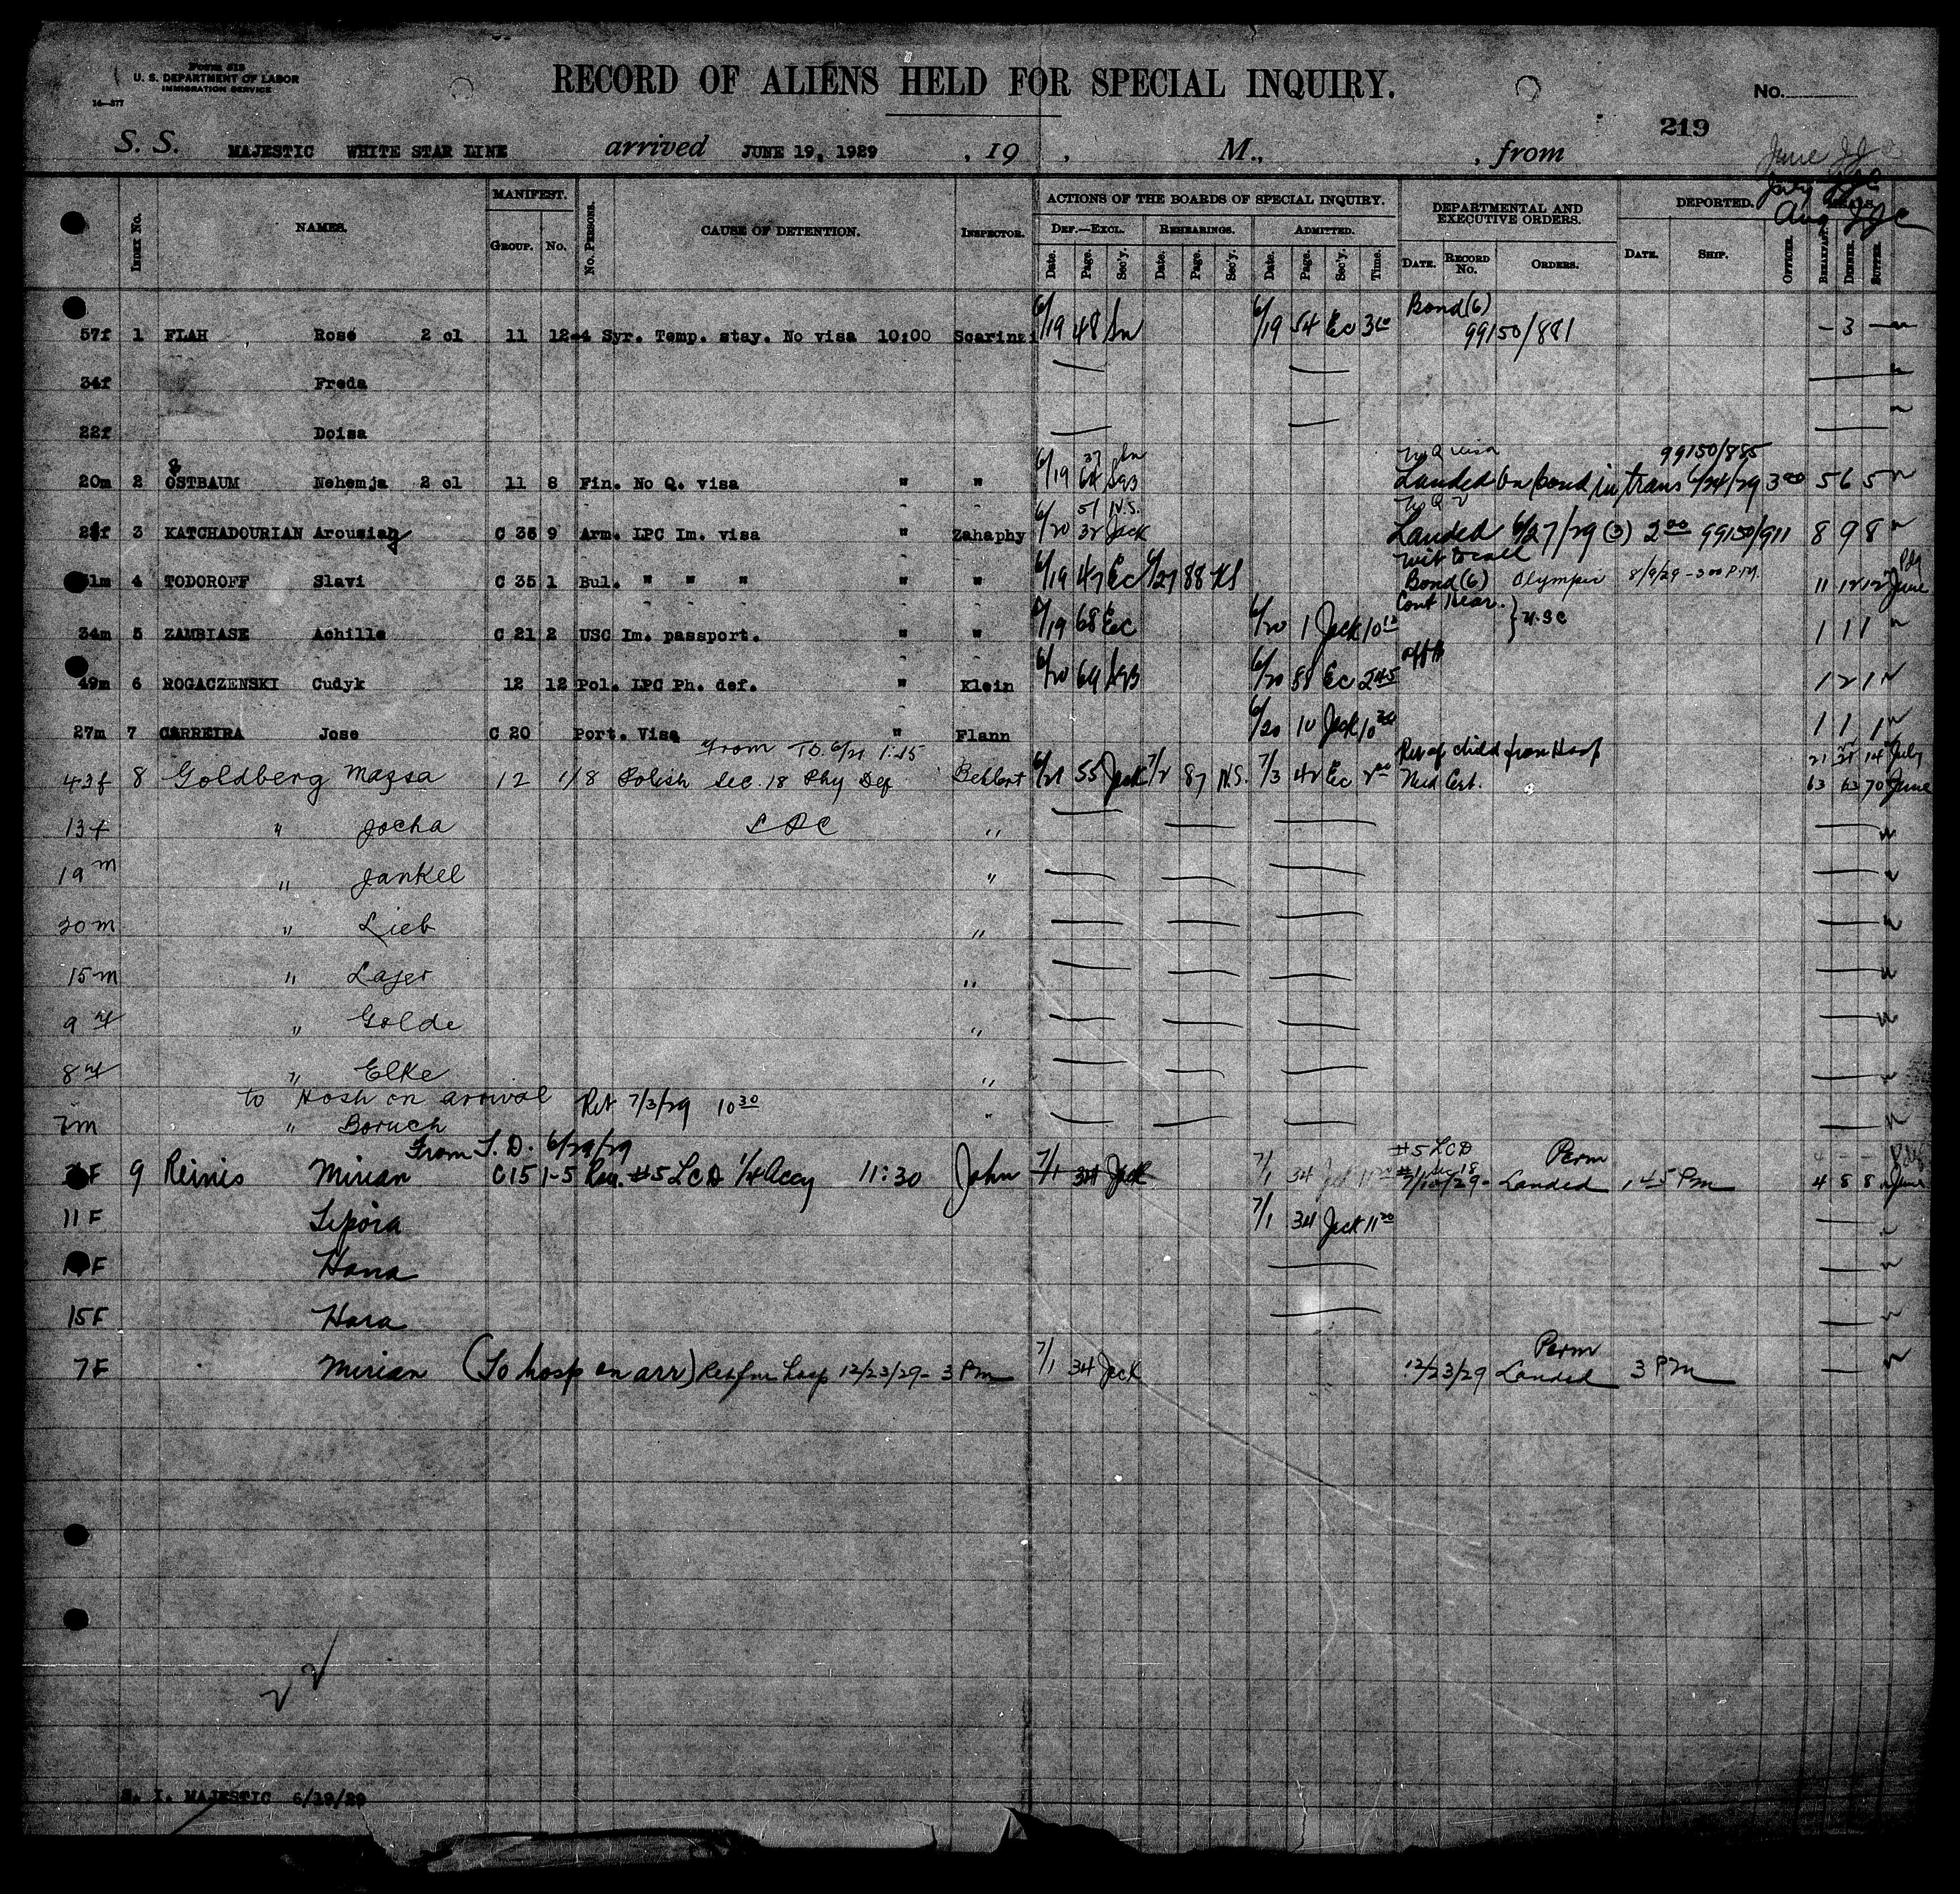 Form 513
U. S. DEPARTMENT OF LABOR
IMMIGRATION SERVICE
14—377
RECORD OF ALIENS HELD FOR SPECIAL INQUIRY.
No.
219
S. S. MAJESTIC WHITE STAR LINE arrived JUNE 19, 1929 , 19 , M., , from
June JJC
July JJC
Aug JJC
INDEX No. NAMES. MANIFEST. GROUP. No. No. PERSONS. CAUSE OF DETENTION. INSPECTOR. ACTIONS OF THE BOARDS OF SPECIAL INQUIRY. DEPARTMENTAL AND EXECUTIVE ORDERS. DEPORTED.
DEF.—EXCL. REHEARINGS. ADMITTED.
Date. Page. Sec'y. Date. Page. Sec'y. Date. Page. Sec'y. Time. DATE. RECORD No. ORDERS. DATE. SHIP. OFFICER. BREAKFAST. DINNER. SUPPER.
Bond (6)
57f 1 FLAH Rose 2 cl 11 12-4 Syr. Temp. stay. No visa 10:00 Scarinzi 6/19 48 Sn 6/19 54 Ec 3 00 99150/881 — 3 —
34f Freda
22f Doisa
No Q visa 99150/885
20m 2 OSTBAUM Nehemja 2 cl 11 8 Fin. No Q. visa " " 6/19 37 Sn 64 Landed on bond in trans 6/24/29 3 00 5 6 5
No Q V
3 KATCHADOURIAN Arousiag C 35 9 Arm. LPC Im. visa " Zahaphy 6/20 51 N.S. 32 Jack Landed 6/27/29 (3) 2 00 99150/911 8 9 8
1m 4 TODOROFF Slavi C 35 1 Bul. " " " " " 6/19 47 Ec 6/27 88 Bond (6) Olympic 8/9/29 - 3 00 P.M. 11 12 12 June
Cont Hear.
34m 5 ZAMBIASE Achille C 21 2 USC Im. passport. " " 6/19 68 Ec 6/20 1 Jack 10 U.S.C 1 1 1
49m 6 ROGACZENSKI Cudyk 12 12 Pol. LPC Ph. def. " Klein 6/20 64 6/20 58 Ec 2 45 1 2 1
27m 7 CARREIRA Jose C 20 Port. Visa " Flann 6/20 10 Jack 10 1 1 1
From T.D. 6/21 1:15
Ret of child from Hosp 21 21 14 July
43f 8 Goldberg Massa 12 1/8 Polish Sec. 18 Phy Def 6/21 55 Jack 7/2 87 N.S. 7/3 42 Ec 2 00 Med Cert. 63 63 70 June
13f " Jocha L P C "
19m " Jankel "
20m " Lieb "
15m " Lajer "
9 f " Golde "
8 f " Elke "
to Hosh on arrival Ret 7/3/29 10 30
7m " Boruch "
From T. D. 6/29/29
#5 LCD Perm
F 9 Reinis Mirian C15 1-5 #5 LCD 1/4 Accy 11:30 John 7/1 34 Jack 7/1 34 Jack 11 7/10/29 - Landed 1 45 PM 4 8 8 June
11F Tipora 7/1 34 Jack 11 20
F Hana
15F Hara
Perm
7F Mirian (To hosp on arr) Ret fm hosp 12/23/29 - 3 PM 7/1 34 Jack 12/23/29 Landed 3 PM
22
S. I. MAJESTIC 6/19/29